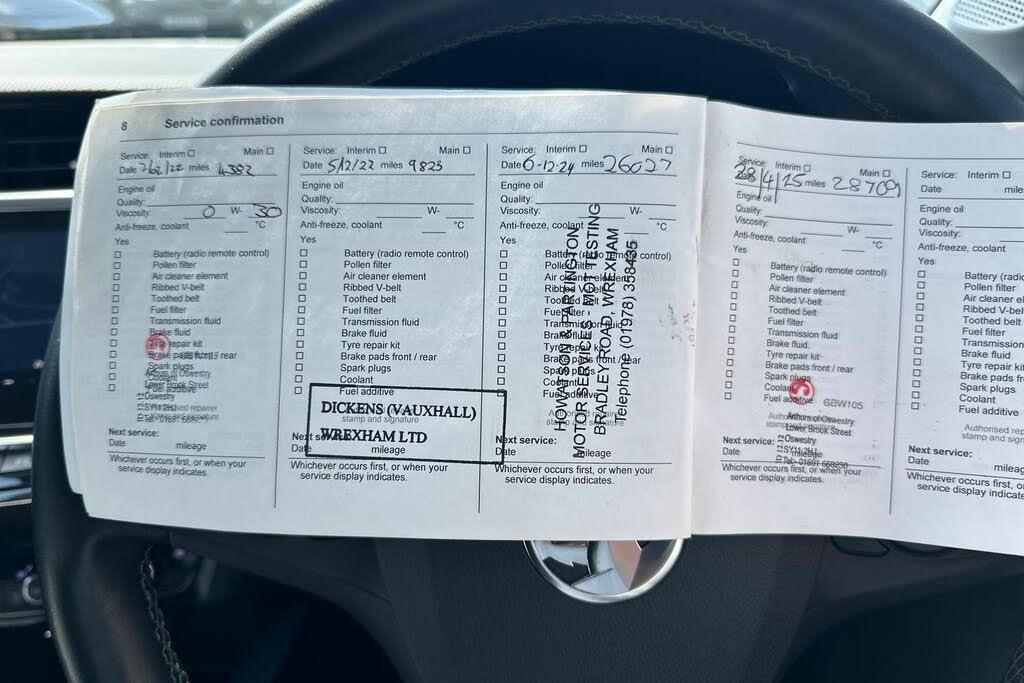 8 Service confirmation
Service: Interim ☐ Main ☐
Date 7/02/22 miles 4382
Engine oil
Quality:
Viscosity: 0 W- 30
Anti-freeze, coolant °C
Yes
☐ Battery (radio remote control)
☐ Pollen filter
☐ Air cleaner element
☐ Ribbed V-belt
☐ Toothed belt
☐ Fuel filter
☐ Transmission fluid
☐ Brake fluid
☐ Tyre repair kit
☐ Brake pads front / rear
☐ Spark plugs
☐ Coolant
☐ Fuel additive
Arthurs of Oswestry
Lower Brook Street
Oswestry
SY11 2HJ
Next service:
Date mileage
Whichever occurs first, or when your
service display indicates.
Service: Interim ☐ Main ☐
Date 5/12/22 miles 9825
Engine oil
Quality:
Viscosity: W-
Anti-freeze, coolant °C
Yes
☐ Battery (radio remote control)
☐ Pollen filter
☐ Air cleaner element
☐ Ribbed V-belt
☐ Toothed belt
☐ Fuel filter
☐ Transmission fluid
☐ Brake fluid
☐ Tyre repair kit
☐ Brake pads front / rear
☐ Spark plugs
☐ Coolant
☐ Fuel additive
DICKENS (VAUXHALL)
stamp and signature
WREXHAM LTD
Next service:
Date mileage
Whichever occurs first, or when your
service display indicates.
Service: Interim ☐ Main ☐
Date 6-12-24 miles 26027
Engine oil
Quality:
Viscosity: W-
Anti-freeze, coolant °C
Yes
☐ Battery (radio remote control)
☐ Pollen filter
☐ Air cleaner element
☐ Ribbed V-belt
☐ Toothed belt
☐ Fuel filter
☐ Transmission fluid
☐ Brake fluid
☐ Tyre repair kit
☐ Brake pads front / rear
☐ Spark plugs
☐ Coolant
☐ Fuel additive
HOWATSON & PARTINGTON
MOTOR SERVICES - MOT TESTING
BRADLEY ROAD, WREXHAM
Telephone (01978) 358435
stamp and signature
Next service:
Date mileage
Whichever occurs first, or when your
service display indicates.
Service: Interim ☐ Main ☐
Date 28/4/25 miles 28709
Engine oil
Quality:
Viscosity: W-
Anti-freeze, coolant °C
Yes
☐ Battery (radio remote control)
☐ Pollen filter
☐ Air cleaner element
☐ Ribbed V-belt
☐ Toothed belt
☐ Fuel filter
☐ Transmission fluid
☐ Brake fluid
☐ Tyre repair kit
☐ Brake pads front / rear
☐ Spark plugs
☐ Coolant
☐ Fuel additive GBW105
Arthurs of Oswestry
Lower Brook Street
Oswestry
SY11 2HJ
Next service:
Date mileage
Whichever occurs first, or when your
service display indicates.
Service: Interim ☐
Date mile
Engine oil
Quality:
Viscosity:
Anti-freeze, coolant
Yes
☐ Battery (radio
☐ Pollen filter
☐ Air cleaner el
☐ Ribbed V-belt
☐ Toothed belt
☐ Fuel filter
☐ Transmission
☐ Brake fluid
☐ Tyre repair kit
☐ Brake pads fr
☐ Spark plugs
☐ Coolant
☐ Fuel additive
Authorised rep
stamp and sign
Next service:
Date mileag
Whichever occurs first, o
service display indicate